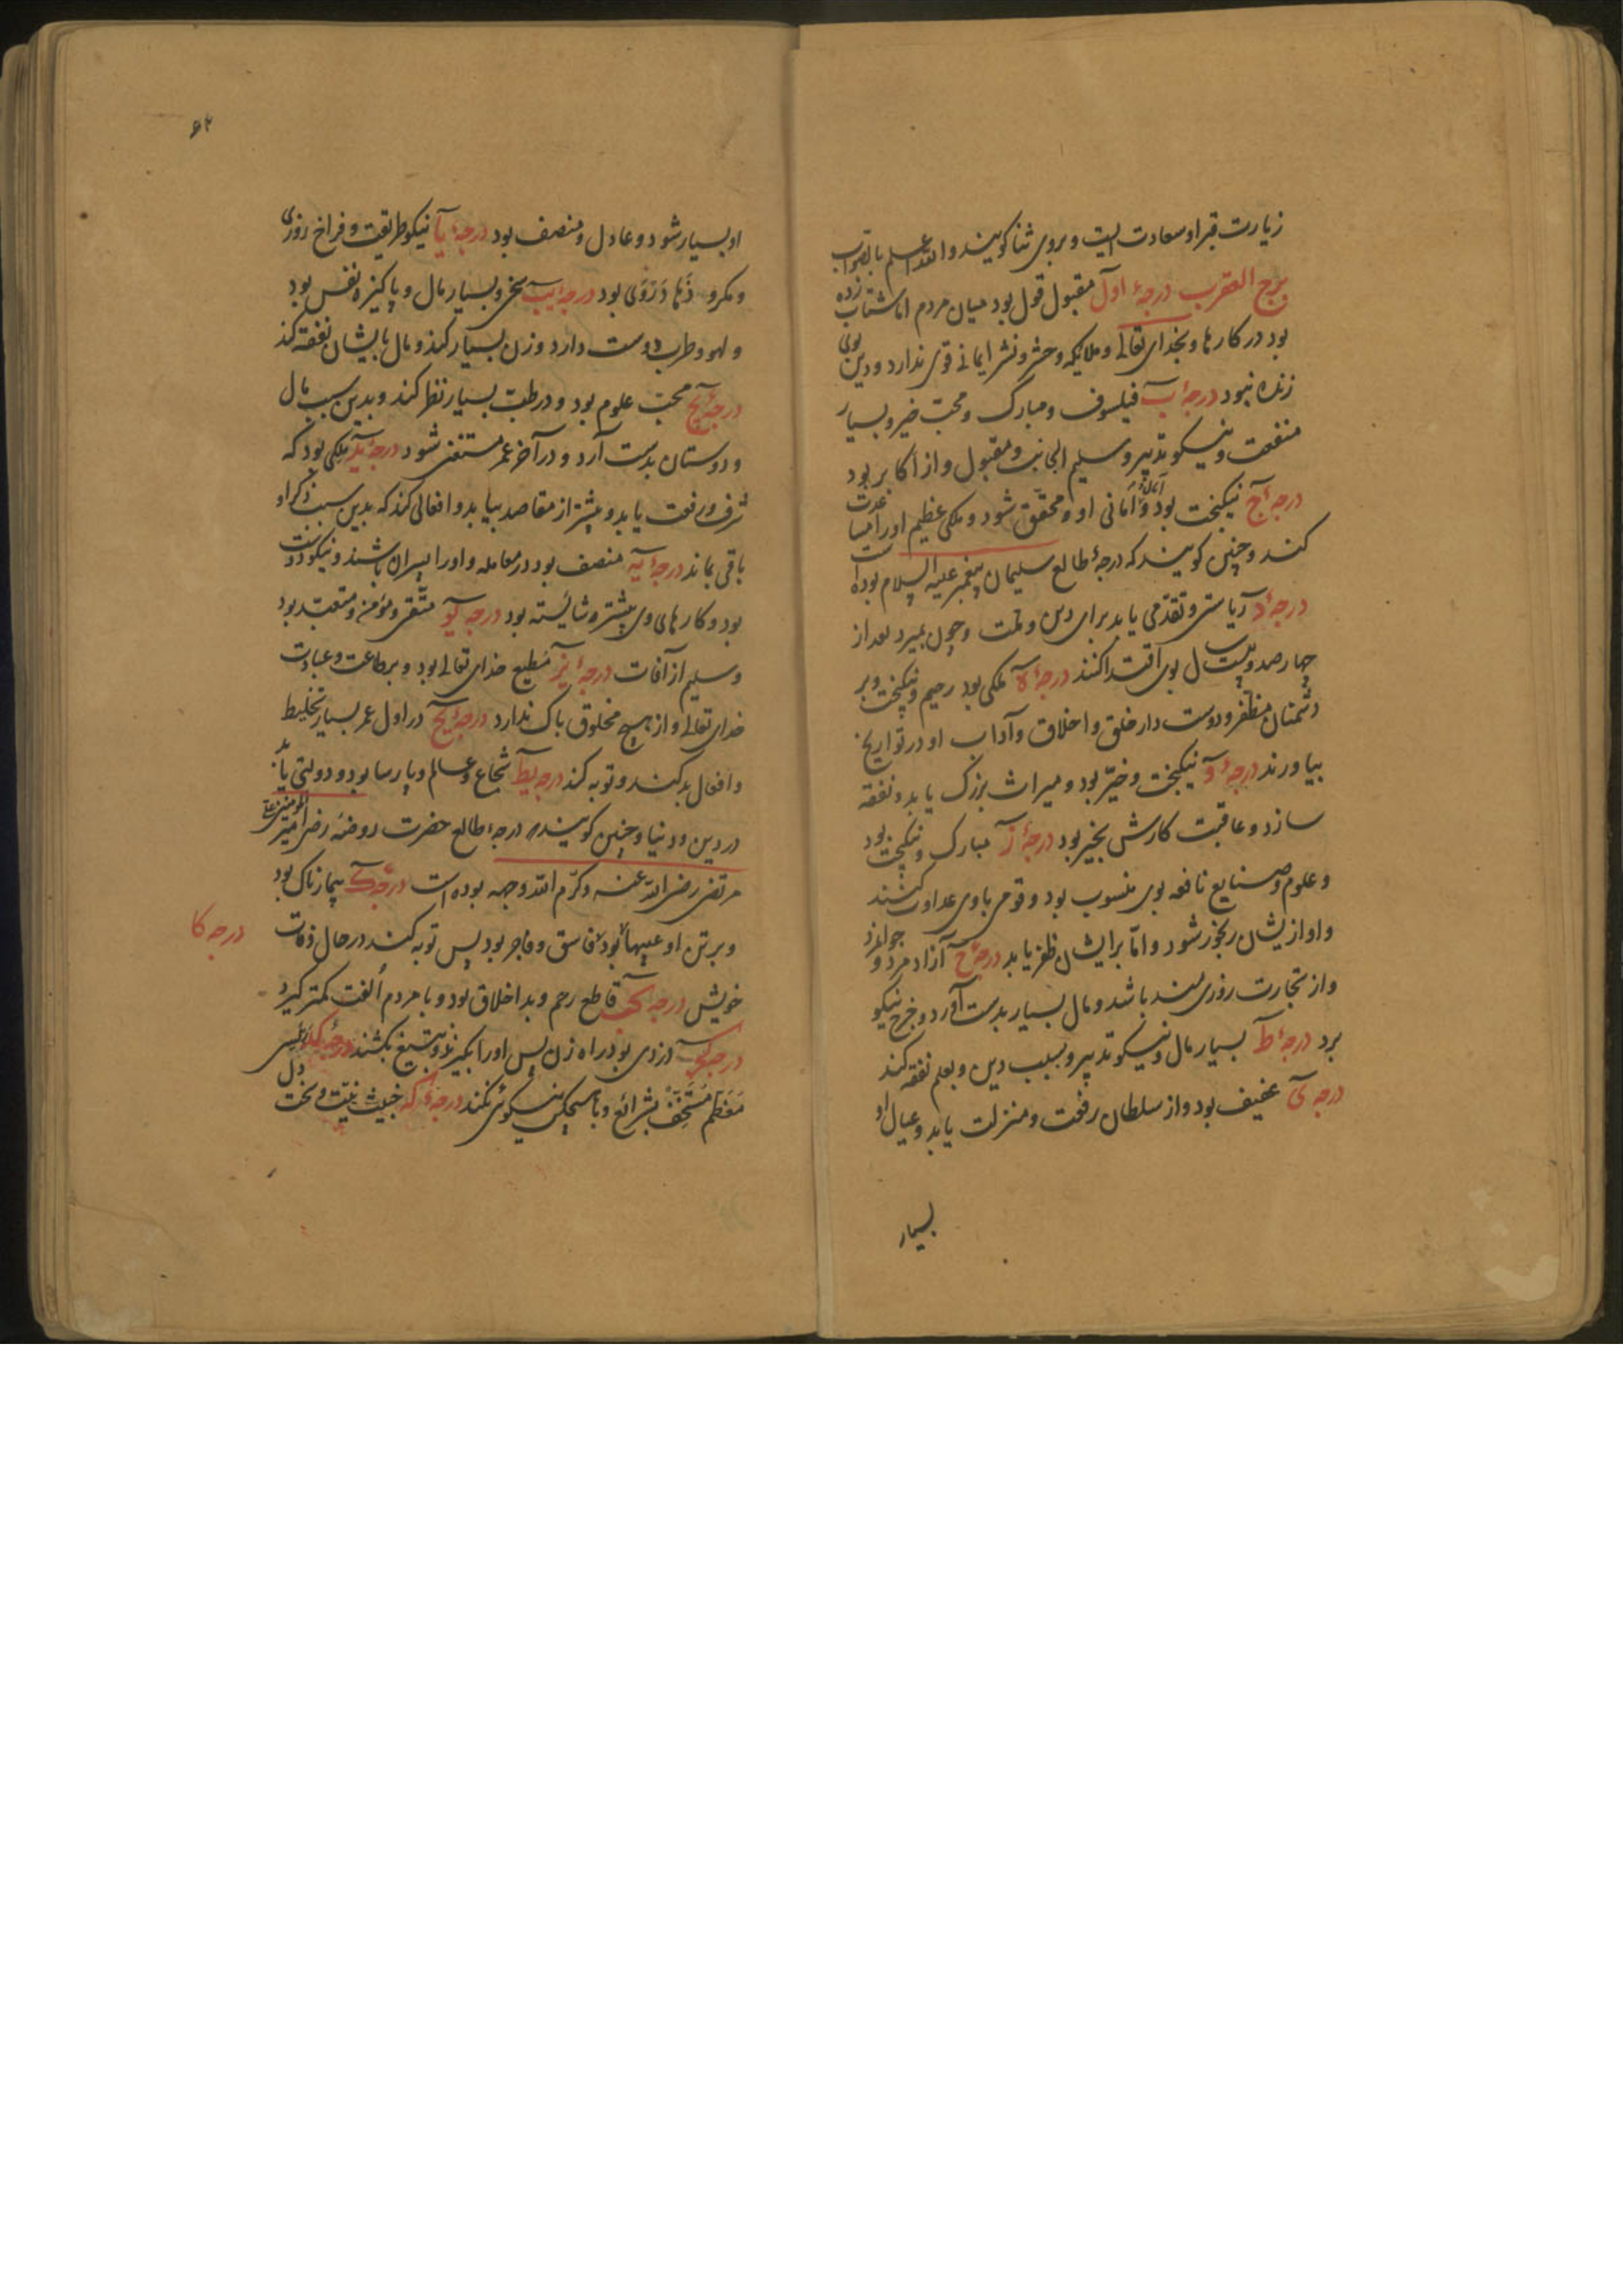 زیارت قبر او سعادت الیت و بروی ثنا کویند والله اعلم بالصواب
برج العقرب درجهٔ اول مقبول قول بود میان مردم اما شتاب زده
بود در کارها و بخدای تعالی و ملایکه و حشر و نشر ایمانی قوی ندارد و دین بوی
زنده نبود درجهٔ ب فیلسوف و مبارک و محب خیر و بسیار
منفعت و نیکو تدبیر و سلیم الجانب و مقبول و از اکابر بود
درجهٔ ج نیکبخت بود و آمال و امانی او محقق شود و ملکی عظیم او را مساعدت
کند و چنین کویند که درجهٔ طالع سلیمان پیغمبر علیه السلام بوده است
درجهٔ د ریاستی و تقدمی یابد برای دین و ملت و چون بمیرد بعد از
چهارصد و بیست سال بوی اقتدا کنند درجهٔ ه ملکی بود رحیم و نیکبخت و بر
دشمنان مظفر و دوست دار خلق و اخلاق و آداب او در تواریخ
بیاورند درجهٔ و نیکبخت و خیر بود و میراث بزرک یابد و نفقه
سازد و عاقبت کارش بخیر بود درجهٔ ز مبارک و نیکبخت بود
و علوم و صنایع نافعه بوی منسوب بود و قومی با وی عداوت کنند
و او ازیشان رنجور شود و اما بر ایشان ظفر یابد درجهٔ ح آزاد مرد و جوانمرد
و از تجارت روزی مند باشد و مال بسیار بدست آورد و خرج نیکو
برد درجهٔ ط بسیار مال و نیکو تدبیر و بسبب دین و بعلم نفقه کند
درجه ی عفیف بود و از سلطان رفعت و منزلت یابد و عیال او
بسیار
۶۲
او بسیار شود و عادل و منصف بود درجهٔ یا نیکو طریقت و فراخ روزی
و مکرو دها بود درجهٔ یب سخی و بسیار مال و پاکیزه نفس بود
و لهو و طرب دوست دارد و زن بسیار کند و مال بایشان نفقه کند
درجهٔ یج محب علوم بود و در طب بسیار نظر کند و بدین سبب مال
و دوستان بدست آرد و در آخر عمر مستغنی شود درجهٔ ید ملکی بود که
شرف و رفعت یابد و بیشتر از مقاصد بیابد و افعالی کند که بدین سبب ذکر او
باقی بماند درجهٔ یه منصف بود در معامله و او را پسران باشند و نیکو دوست
بود و کارهای وی بیشتر شایسته بود درجه یو متقی و مؤمن و متعبد بود
و سلیم از آفات درجهٔ یز مطیع خدای تعالی بود و بر طاعت و عبادت
خدای تعالی و از هیچ مخلوق باک ندارد درجهٔ یح در اول عمر بسیار تخلیط
و افعال بد کند و توبه کند درجه یط شجاع و عالم و پارسا بود و دولتی یابد
در دین و دنیا و چنین کویند درجهٔ طالع حضرت امیر المومنین علی
مرتضی رضی الله عنه و کرم الله وجهه بوده است درجهٔ ک بیمار ناک بود
و بر تن او عیبها بود فاسق و فاجر بود پس توبه کند در حال وفات درجه کا
خویش درجه کب قاطع رحم و بد اخلاق بود و با مردم الفت کمتر کیرد
درجه کج دزدی بود راه زن پس او را بگیرند و بتیغ بکشند درجهٔ کد
معظم مستخف بشرائع و با هیچکس نیکوئی نکند درجهٔ که خبیث نیت و سخت دل